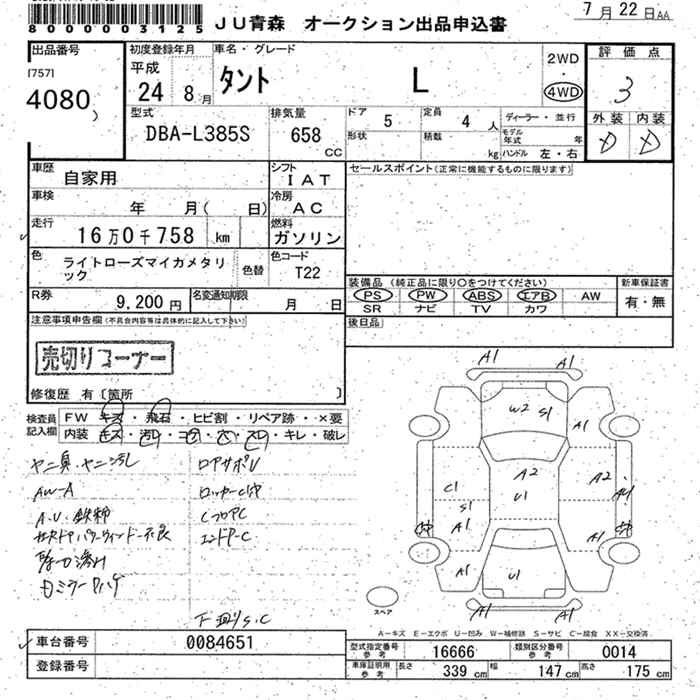 8000003125
JU青森 オークション出品申込書
7月22日AA
出品番号
[757]
4080
初度登録年月
平成
24 8月
車名・グレード
タント L
2WD
・
4WD
評価点
3
外装 内装
D D
型式
DBA-L385S
排気量
658
CC
ドア 5
形状
定員 4 人
積数 kg
ディーラー・並行
モデル年式 年
ハンドル 左・右
車歴
自家用
シフト
IAT
セールスポイント(正常に機能するものに限ります)
車検
年 月( 日)
冷房
AC
走行
16万0千758 km
燃料
ガソリン
色
ライトローズマイカメタリ
ック
色替
色コード
T22
装備品 (純正品に限り○をつけてください)
PS PW ABS エアB AW
SR ナビ TV カワ
新車保証書
有・無
R券
9,200 円
名変通知期限
月 日
後日品
注意事項申告欄(不具合内容等は具体的に記入して下さい)
売切りコーナー
修復歴 有 〔箇所 〕
検査員
記入欄
FW キズ・飛石・ヒビ割・リペア跡・×要
内装 キズ・汚レ・コゲ・穴・スレ・キレ・破レ
ヤニ臭・ヤニ汚レ
AW-A
A.U.鉄粉
下回りS.C
A1 A1
W2 S1
A1
C1
S1
A1
A2
U1
A2
A1
A1
A1
U1
A1 A1
スペア
A-キズ E-エクボ U-凹み W-補修跡 S-サビ C-腐食 XX-交換済
車台番号
0084651
登録番号
型式指定番号
参考
16666
類別区分番号
参考
0014
車庫証明用
参考
長さ 339 cm 幅 147 cm 高さ 175 cm